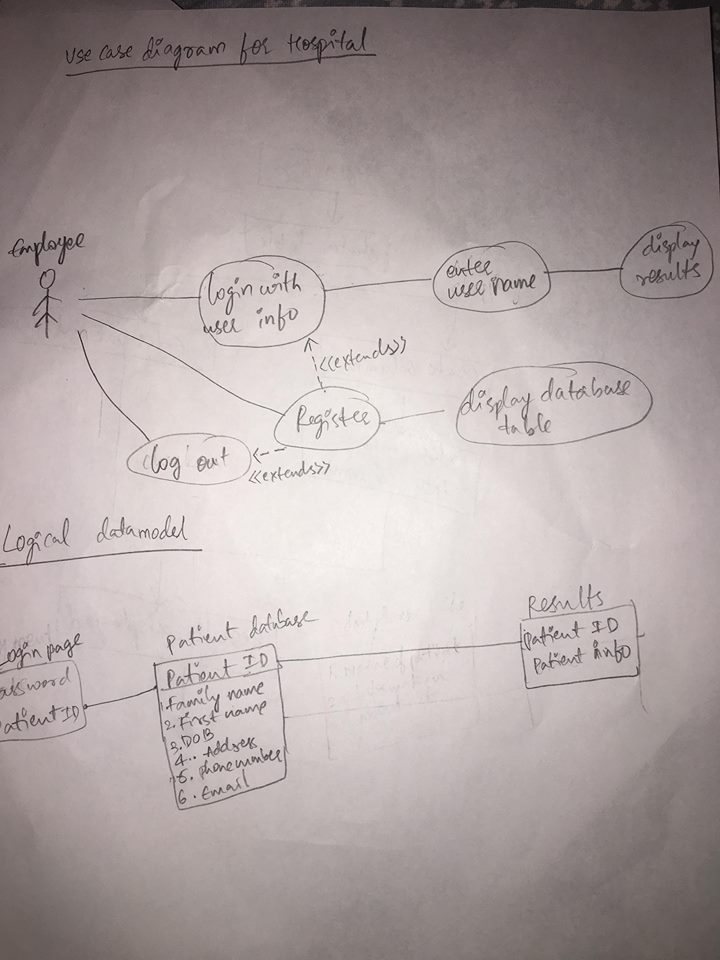 Use case diagram for Hospital
Employee
login with
user info
enter
user name
display
results
<<extends>>
Register
display database
table
log out
<<extends>>
Logical datamodel
Login page
assword
atient ID
Patient database
Patient ID
1. Family name
2. First name
3. DOB
4.. Address
5. phone number
6. Email
Results
patient ID
Patient info